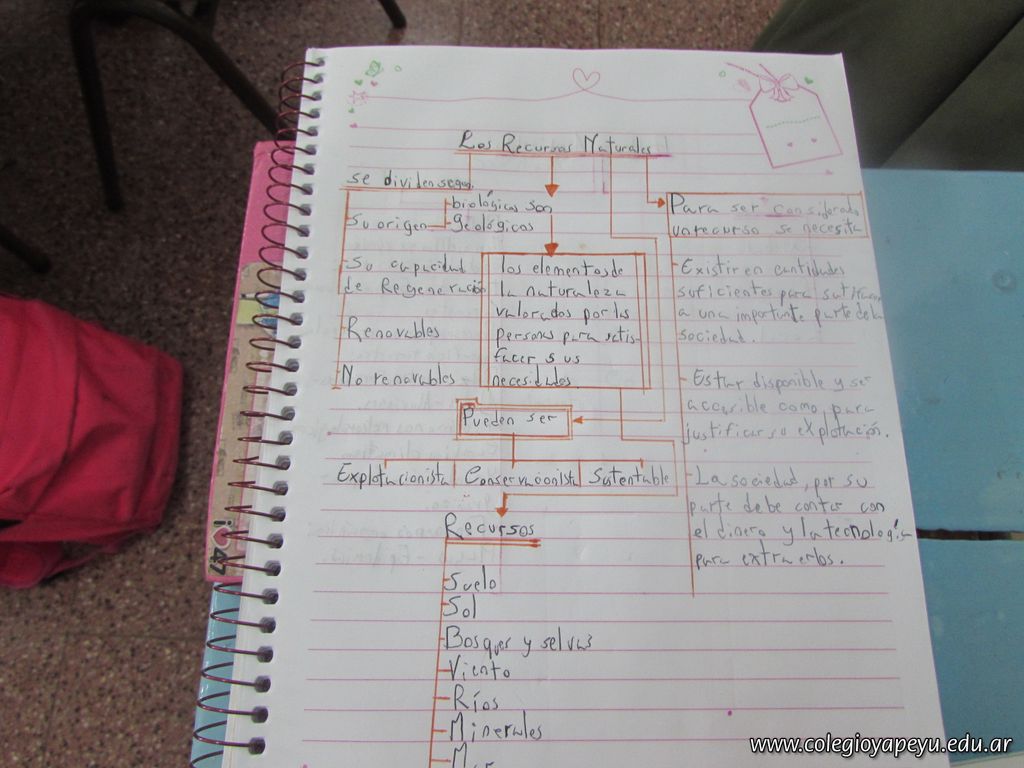 Los Recursos Naturales
se dividen segun
Su origen
biológicos son
Geológicos
Su capacidad
de Regeneración
Renovables
No renovables
los elementos de
la naturaleza
valorados por las
personas para satis-
facer sus
necesidades.
Para ser considerado
un recurso se necesita
- Existir en cantidades
suficientes para
a una importante parte de la
sociedad.
- Estar disponible y ser
accesible como para
justificar su explotación.
- La sociedad, por su
parte debe contar con
el dinero y la tecnología
para extraerlos.
Pueden ser
Explotacionista
Conservacionista
Sustentable
Recursos
Suelo
Sol
Bosques y selvas
Viento
Ríos
Minerales
i 47
www.colegioyapeyu.edu.ar